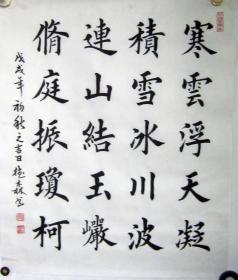 寒雲浮天凝
積雪冰川波
連山結玉巗
脩庭振瓊柯
戊戌年初秋之吉日